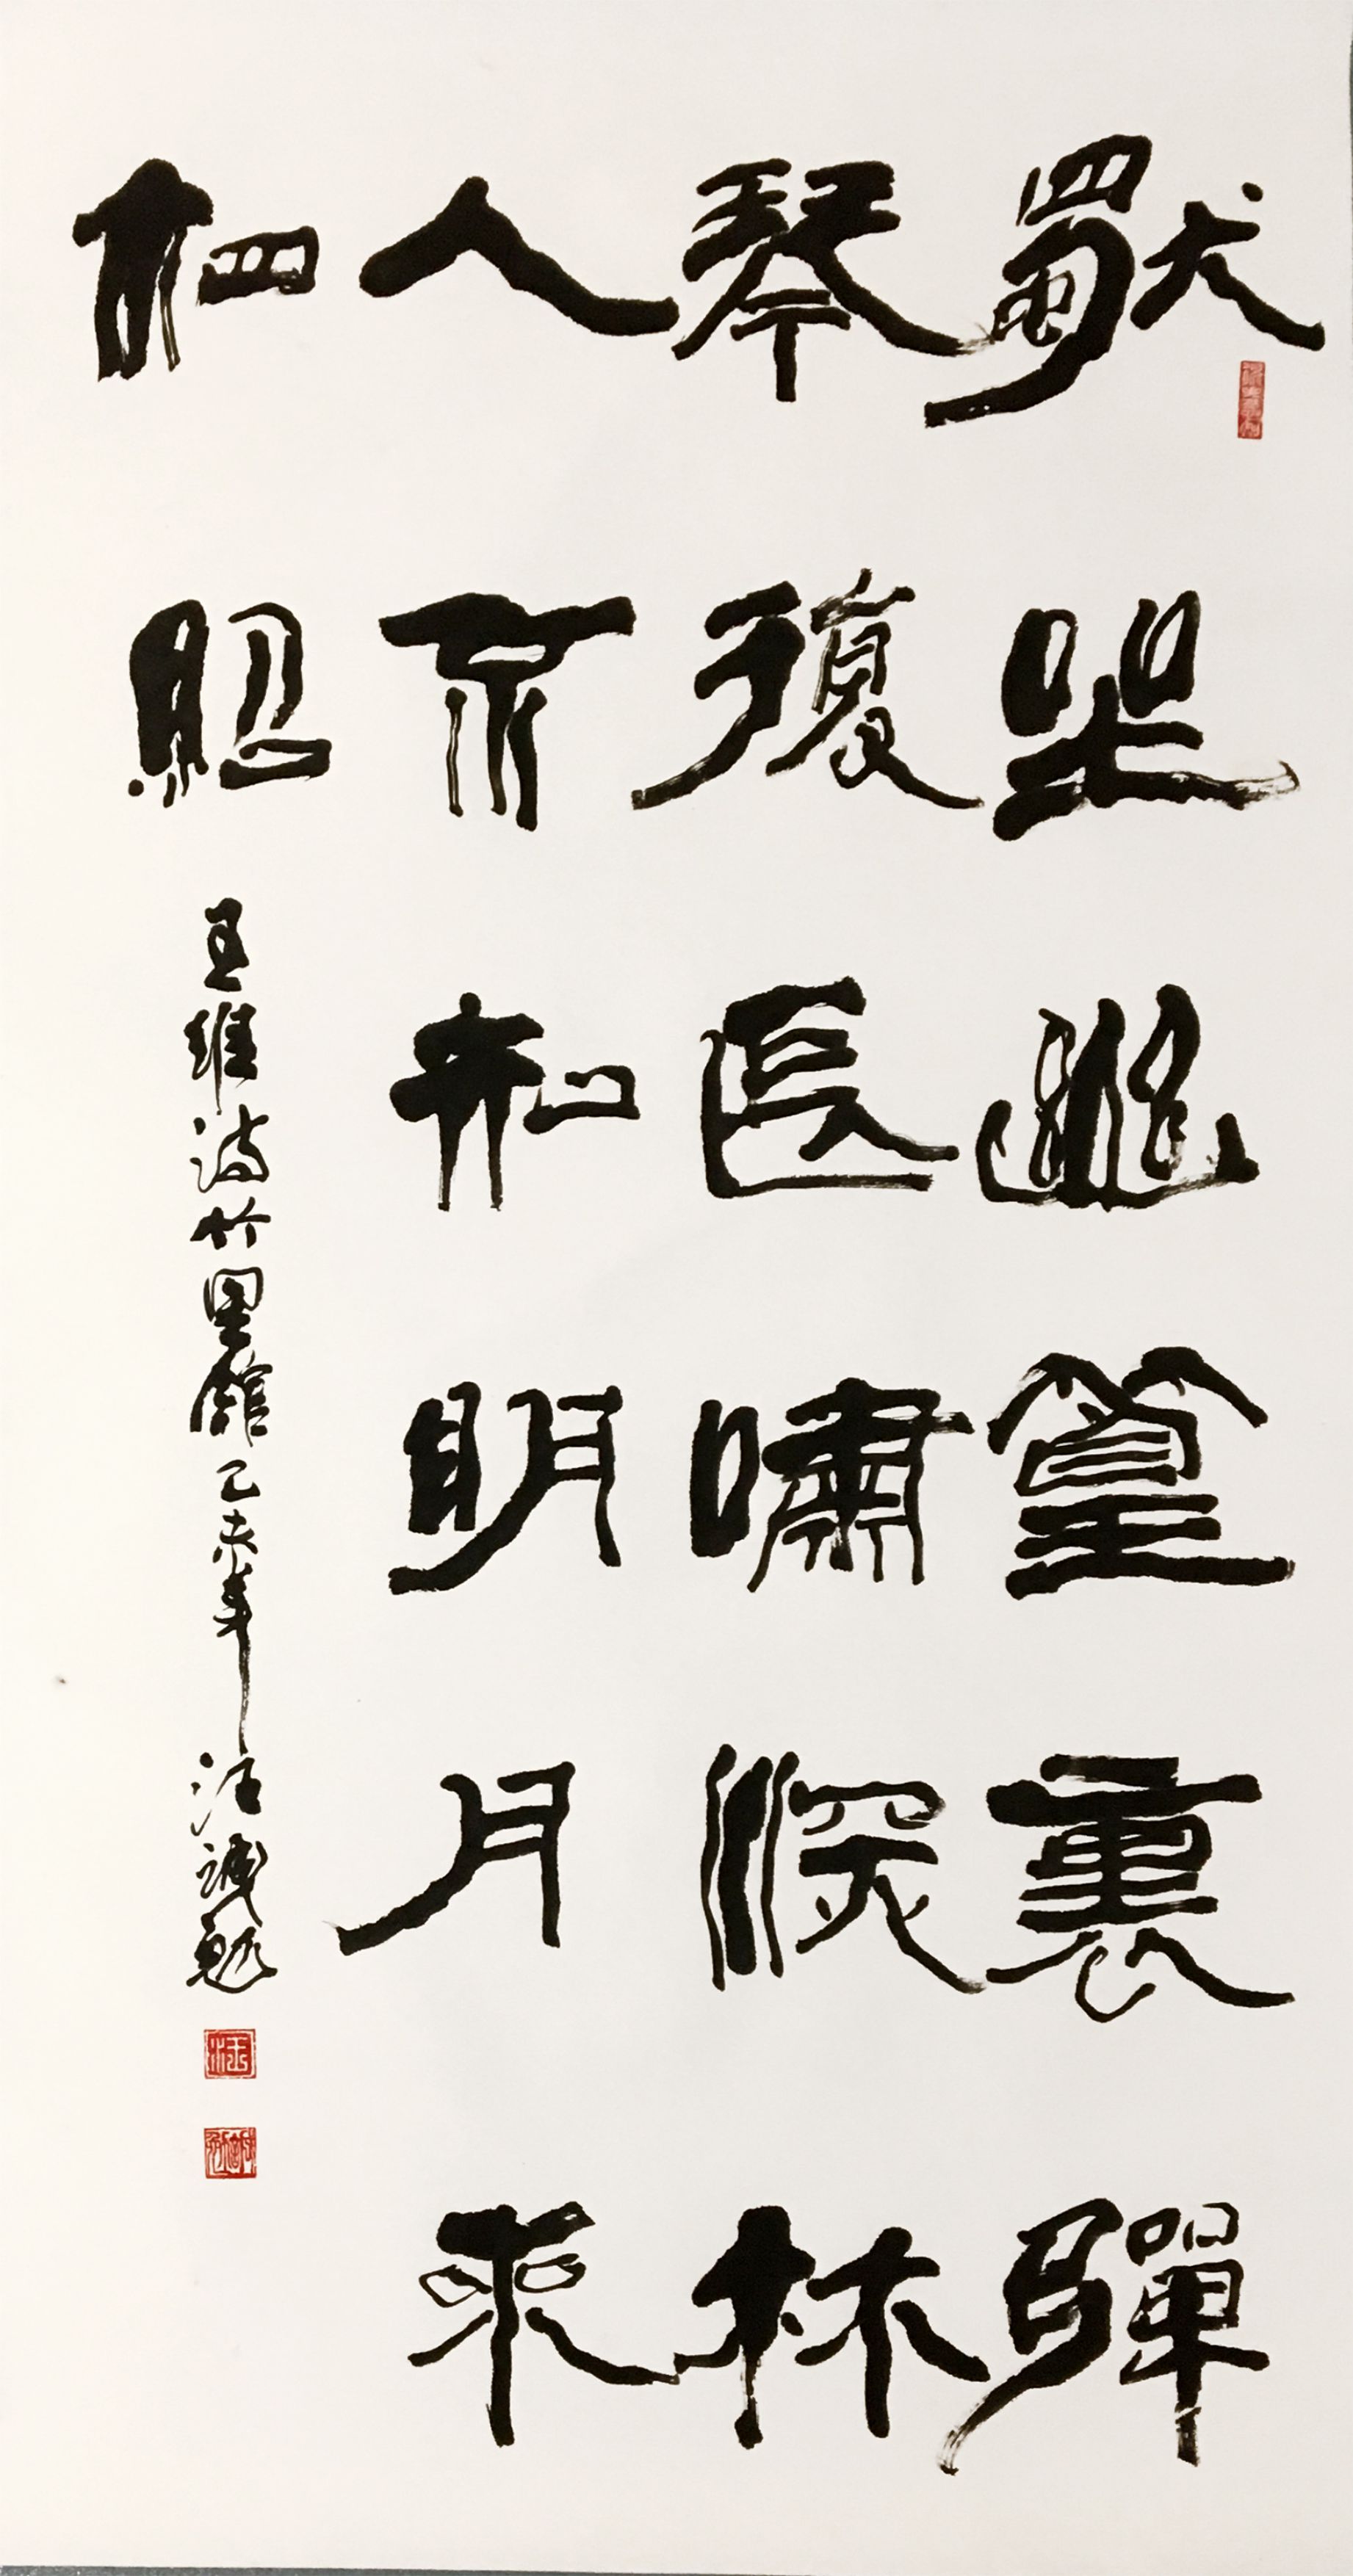 獨坐幽篁裏彈
琴復長嘯深林
人不知明月來
相照
王維詩竹里館乙未年汪誠勉
汪
誠勉